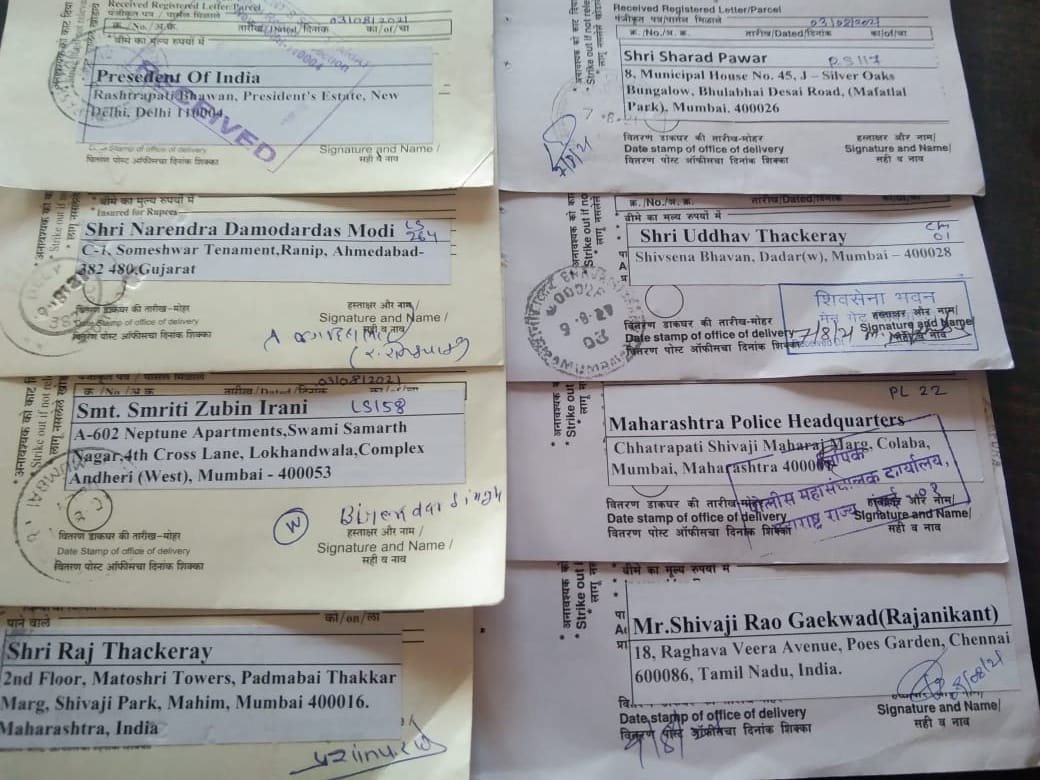 Received Registered Letter/Parcel
पंजीकृत पत्र / पार्सल मिळाले
03/08/2021
क्र./No/अ.क्र.
तारीख/Dated/दिनांक
का/of/चा
* बीमे का मूल्य रुपयों में
Presedent Of India
Rashtrapati Bhawan, President's Estate, New
Delhi, Delhi 110004
RECEIVED
Stamp of office of delivery
वितरण पोस्ट ऑफीसचा दिनांक शिक्का
Signature and Name /
सही व नाव
बीमे का मूल्य रुपयों में
* Insured for Rupees
Shri Narendra Damodardas Modi
LS
264
C-1, Someshwar Tenament,Ranip, Ahmedabad-
382 480,Gujarat
वितरण डाकघर की तारीख-मोहर
Date Stamp of office of delivery
वितरण पोस्ट ऑफीसचा दिनांक शिक्का
हस्ताक्षर और नाम/
Signature and Name /
सही व नाव
03/08/2021
क्र /No /अ.क्र.
तारीख/Dated/दिनांक
का/of/चा
Smt. Smriti Zubin Irani
LS158
A-602 Neptune Apartments,Swami Samarth
Nagar,4th Cross Lane, Lokhandwala,Complex
Andheri (West), Mumbai - 400053
W
वितरण डाकघर की तारीख-मोहर
Date Stamp of office of delivery
वितरण पोस्ट ऑफीसचा दिनांक शिक्का
हस्ताक्षर और नाम /
Signature and Name /
सही व नाव
पाने वाले
को/on/ला
Shri Raj Thackeray
2nd Floor, Matoshri Towers, Padmabai Thakkar
Marg, Shivaji Park, Mahim, Mumbai 400016.
Maharashtra, India
Received Registered Letter/Parcel
पंजीकृत पत्र/पार्सल मिळाले
03/08/2021
क्र. /No./अ. क्र.
तारीख/Dated/दिनांक
का/of/चा
Shri Sharad Pawar
RS117
8, Municipal House No. 45, J – Silver Oaks
Bungalow, Bhulabhai Desai Road, (Mafatlal
Park), Mumbai. 400026
वितरण डाकघर की तारीख-मोहर
Date stamp of office of delivery
वितरण पोस्ट ऑफीसचा दिनांक शिक्का
हस्ताक्षर और नाम/
Signature and Name/
सही व नाव
क्र. /No./अ. क्र.
तारीख/Dated/दिनांक
का/of/चा
* बीमे का मूल्य रुपयों में
Shri Uddhav Thackeray
CM
01
Shivsena Bhavan, Dadar(w), Mumbai – 400028
शिवसेना भवन
वितरण डाकघर की तारीख-मोहर
Date stamp of office of delivery
वितरण पोस्ट ऑफीसचा दिनांक शिक्का
7/8/21
हस्ताक्षर और नाम/
Signature and Name/
सही व नाव
9-8-21
PL 22
Maharashtra Police Headquarters
Chhatrapati Shivaji Maharaj Marg, Colaba,
Mumbai, Maharashtra 40000
पोलीस महासंचालक कार्यालय,
वितरण डाकघर की तारीख-मोहर
Date stamp of office of delivery
वितरण पोस्ट ऑफीसचा दिनांक शिक्का
Signature and Name/
सही व नाव
बीमे का मूल्य रुपयों में
Mr.Shivaji Rao Gaekwad(Rajanikant)
18, Raghava Veera Avenue, Poes Garden, Chennai
600086, Tamil Nadu, India.
Date stamp of office of delivery
वितरण पोस्ट ऑफीसचा दिनांक शिक्का
Signature and Name/
सही व नाव